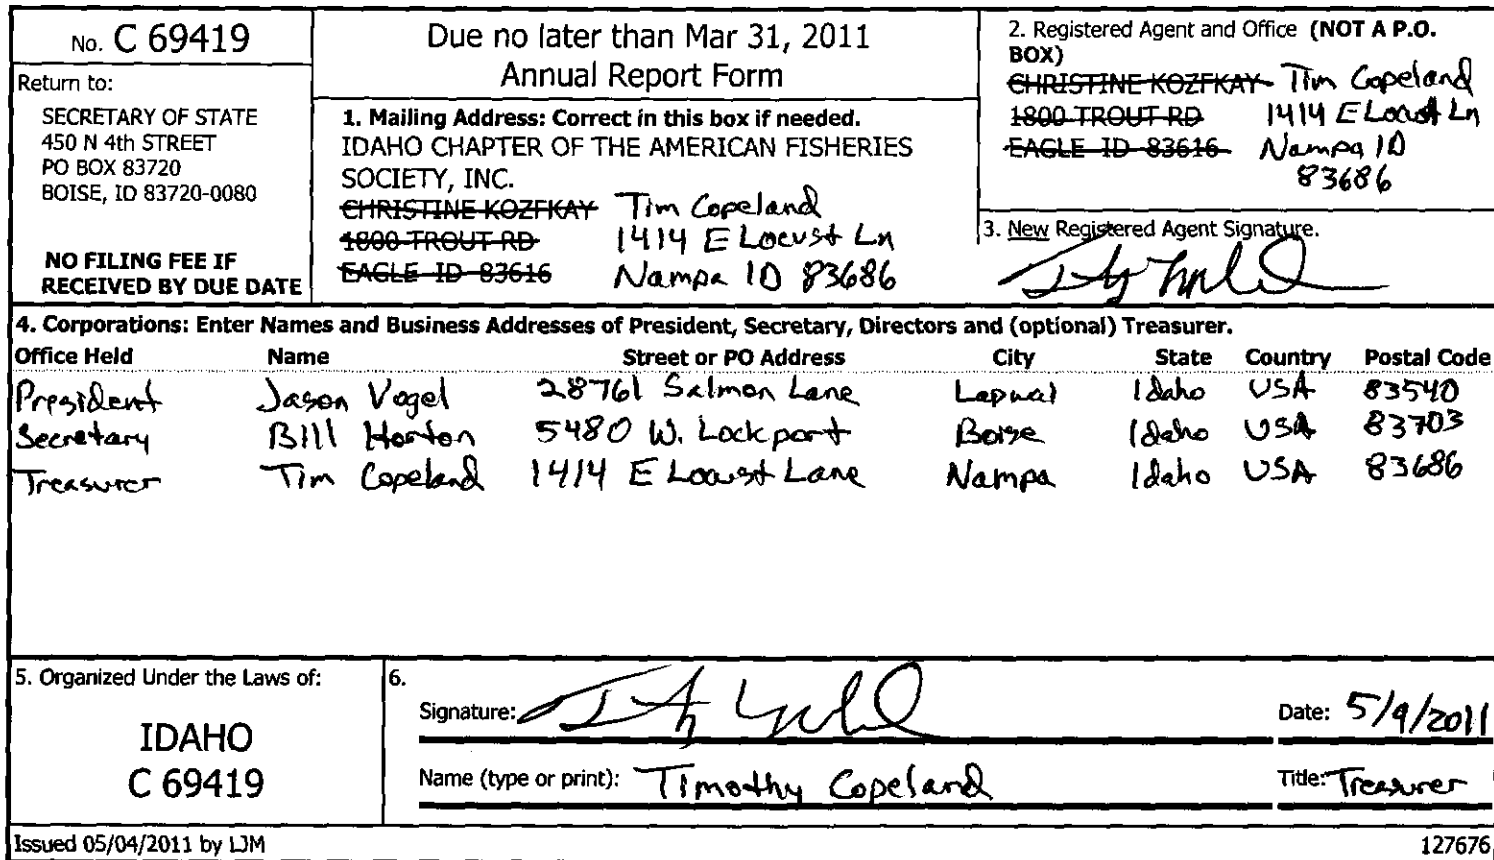 No. C 69419
Return to:
SECRETARY OF STATE
450 N 4th STREET
PO BOX 83720
BOISE, ID 83720-0080
NO FILING FEE IF
RECEIVED BY DUE DATE
Due no later than Mar 31, 2011
Annual Report Form
1. Mailing Address: Correct in this box if needed.
IDAHO CHAPTER OF THE AMERICAN FISHERIES
SOCIETY, INC.
CHRISTINE KOZFKAY Tim Copeland
1800 TROUT RD 1414 E Locust Ln
EAGLE ID 83616 Nampa ID 83686
2. Registered Agent and Office (NOT A P.O.
BOX)
CHRISTINE KOZFKAY Tim Copeland
1800 TROUT RD 1414 E Locust Ln
EAGLE ID 83616 Nampa ID
83686
3. New Registered Agent Signature.
4. Corporations: Enter Names and Business Addresses of President, Secretary, Directors and (optional) Treasurer.
Office Held Name Street or PO Address City State Country Postal Code
President Jason Vogel 28761 Salmon Lane Lapwai Idaho USA 83540
Secretary Bill Horton 5480 W. Lockport Boise Idaho USA 83703
Treasurer Tim Copeland 1414 E Locust Lane Nampa Idaho USA 83686
5. Organized Under the Laws of:
IDAHO
C 69419
6.
Signature: Date: 5/9/2011
Name (type or print): Timothy Copeland Title: Treasurer
Issued 05/04/2011 by LJM 127676